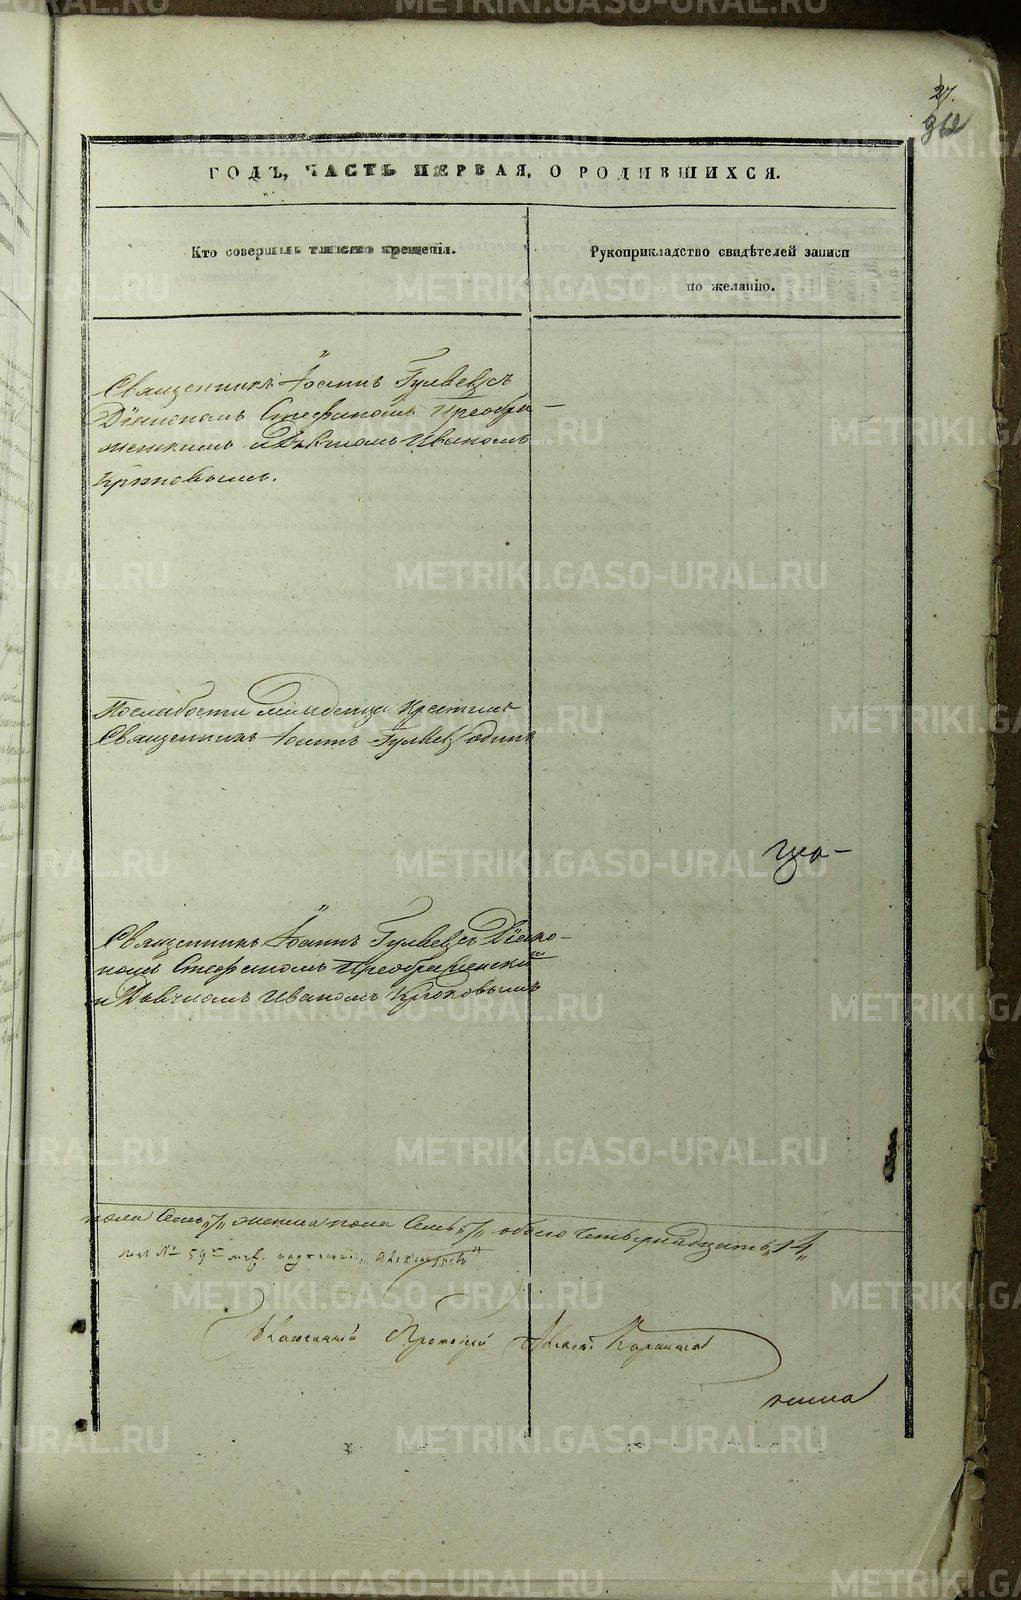 27.
ГОДЪ, ЧАСТЬ ПЕРВАЯ, О РОДИВШИХСЯ.
Кто совершалъ таинство крещенія.
Рукоприкладство свидѣтелей записи
по желанію.
Священникъ Іоаннъ Гуляевъ съ
Діакономъ Стефаномъ Преобра-
женскимъ и Дьячкомъ Иваномъ
Крюковымъ.
По слабости младенца крестилъ
Священникъ Іоаннъ Гуляевъ одинъ
Священникъ Іоаннъ Гуляевъ съ Діако-
номъ Стефаномъ Преображенским
и Дьячкомъ Иваномъ Крюковымъ
пола Семь „7„ женска пола Семь „7„ обоего четырнадцать „14„
№ 59
METRIKI.GASO-URAL.RU